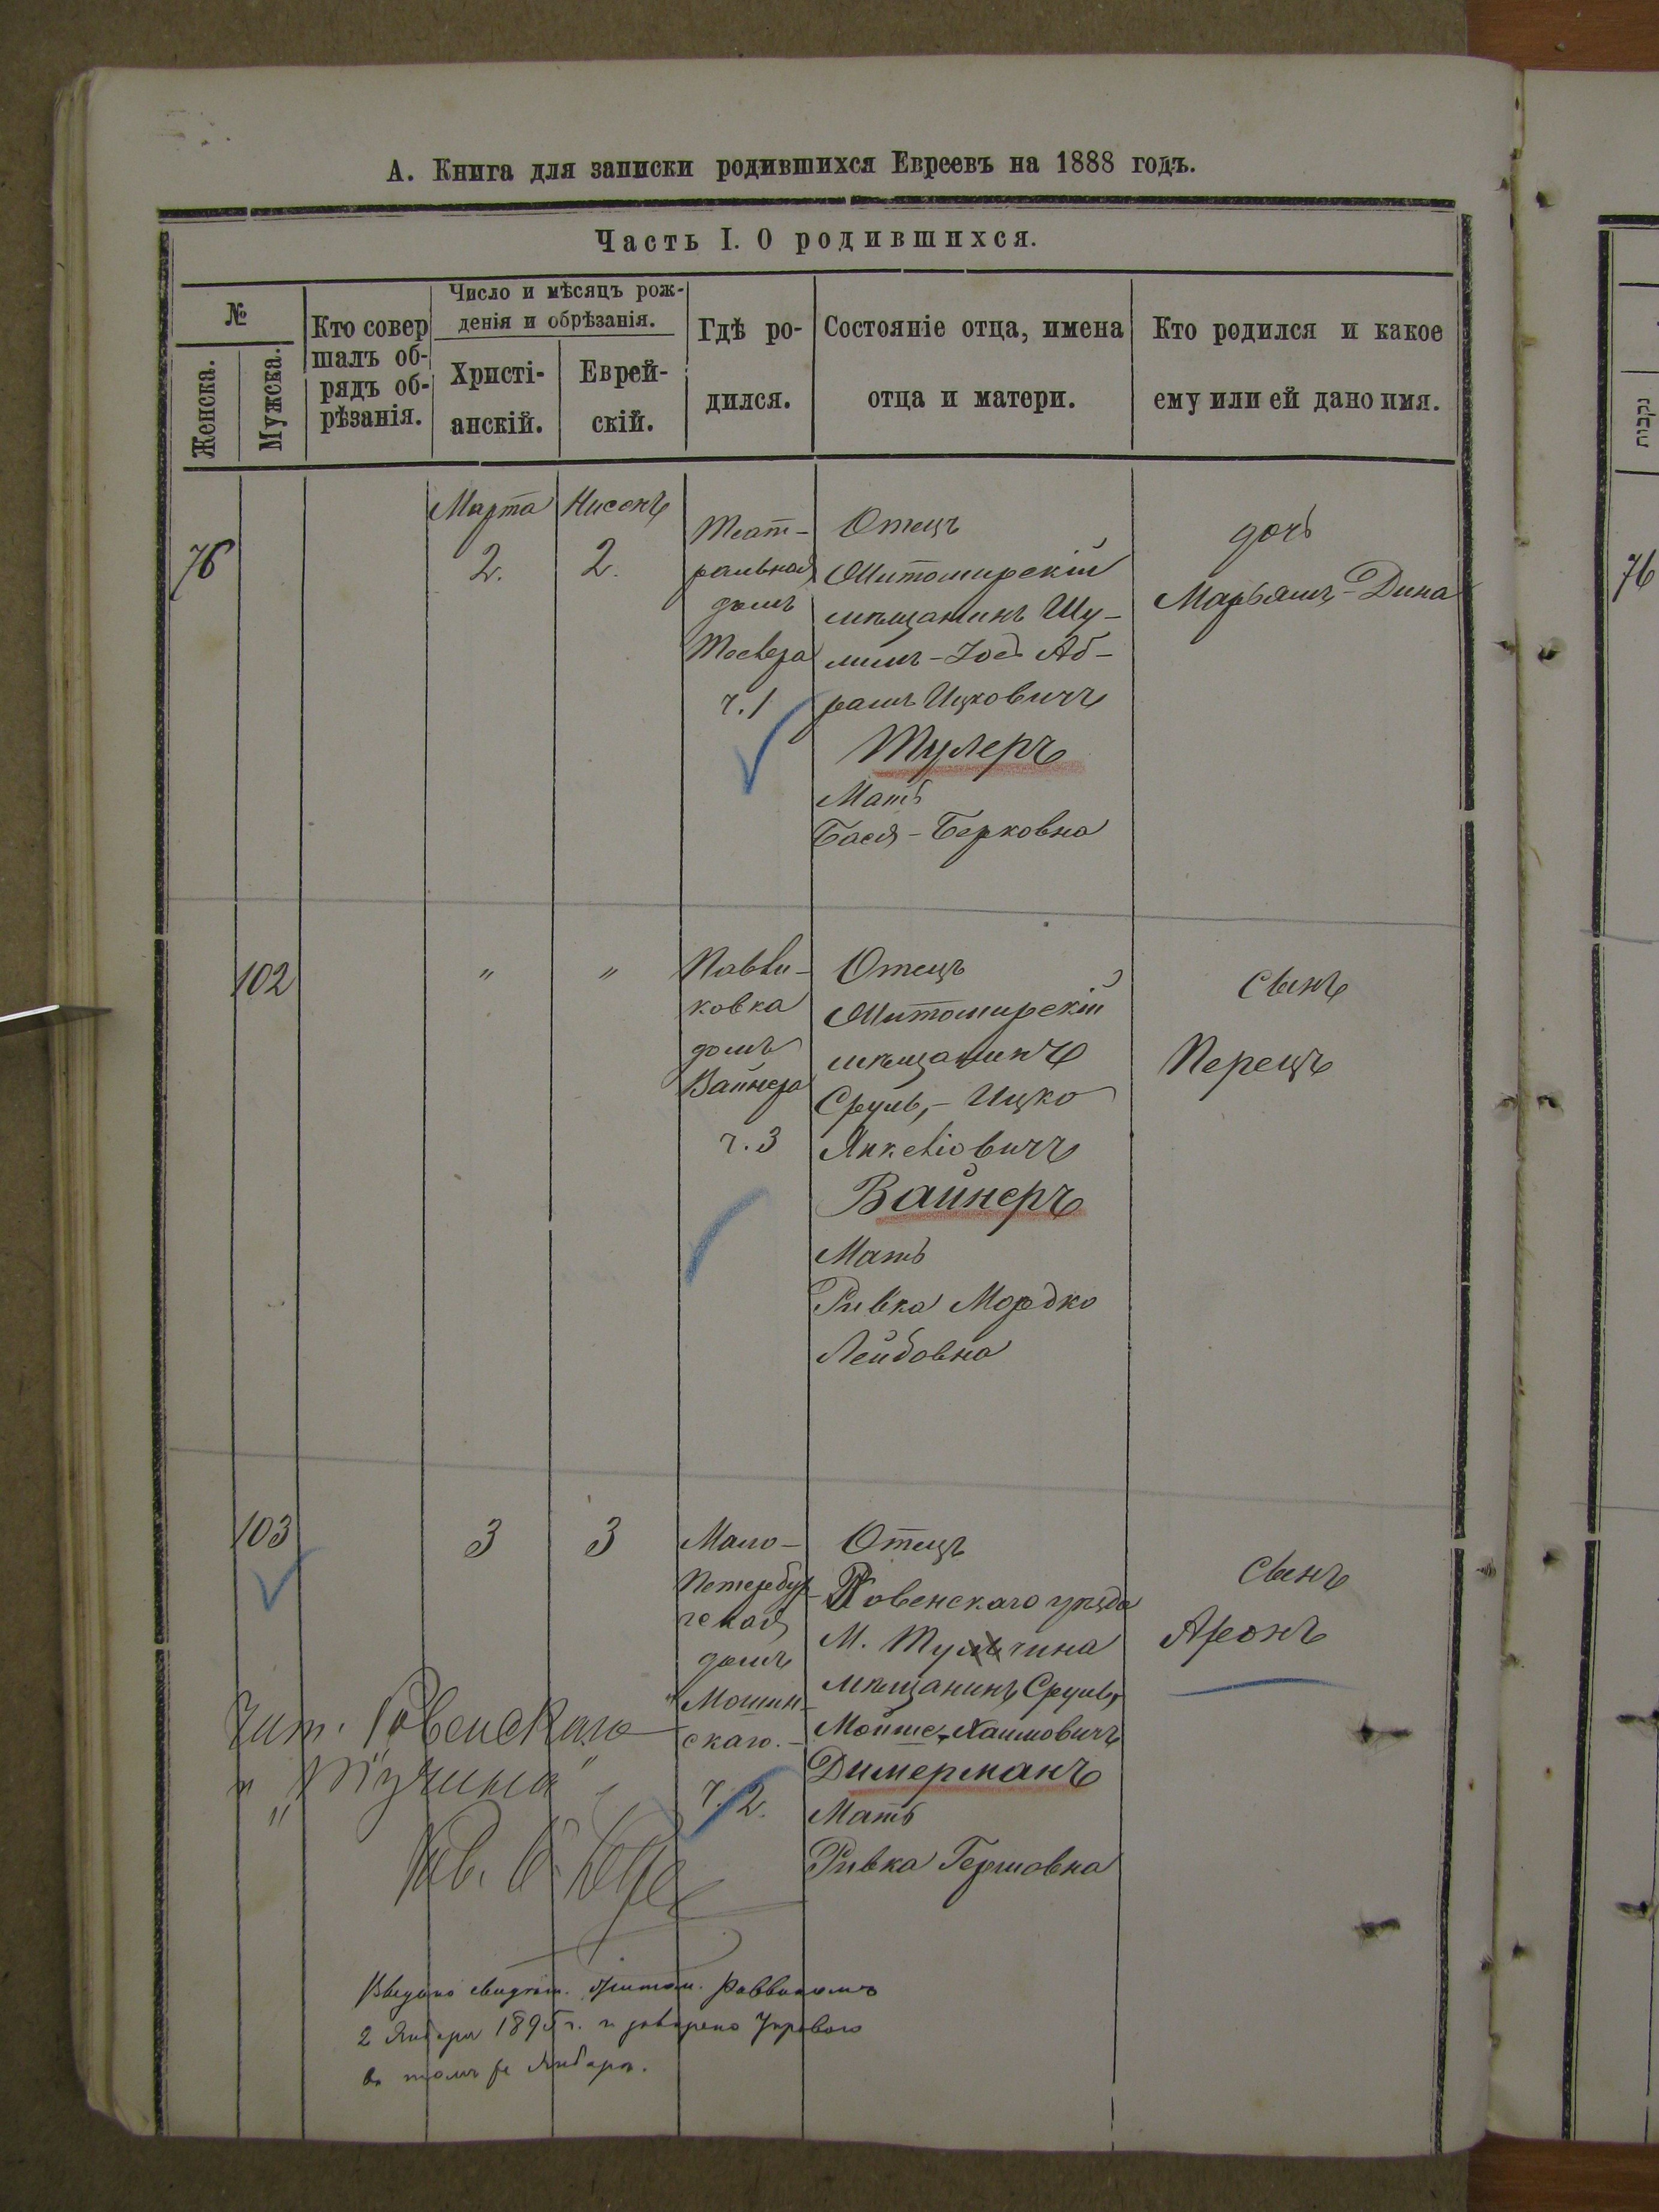 А. Книга для записки родившихся Евреевъ на 1888 годъ.
Часть I. О родившихся.
№
Женска.
Мужска.
Кто совер
шалъ об-
рядъ об-
рѣзанія.
Число и мѣсяцъ рож-
денія и обрѣзанія.
Христі-
анскій.
Еврей-
скій.
Гдѣ ро-
дился.
Состояніе отца, имена
отца и матери.
Кто родился и какое
ему или ей дано имя.
נקבות
76
Марта
2.
Нисонъ
2.
Теат-
ральная
домъ
ч. 1
Отецъ
Житомирскій
мѣщанинъ Шу-
лимъ-Іось Аб-
рамъ Ицковичъ
Тулеръ
Мать
Бася-Берковна
дочь
Марьямъ-Дина
76
102
"
"
Павли-
ковка
домъ
Вайнера
ч. 3
Отецъ
Житомирскій
мѣщанинъ
Сруль,-Ицко
Янкеліовичъ
Вайнеръ
Мать
Ривка Мордко
Лейбовна
сынъ
Перецъ
103
3
3
Мало-
Петербур-
гская
домъ
Мошин-
скаго.-
ч. 2.
Отецъ
Ровенскаго уѣзда
М. Тульчина
мѣщанинъ Сруль,
Мойше-Хаимовичъ
Димерманъ
Мать
Ривка Гершовна
сынъ
Аронъ
Чит. Ровенскаго
и "Тучина"
Рав.
Выдано свидѣт. Житом. Раввиномъ
2 Января 1895 г.
въ томъ же Январѣ.